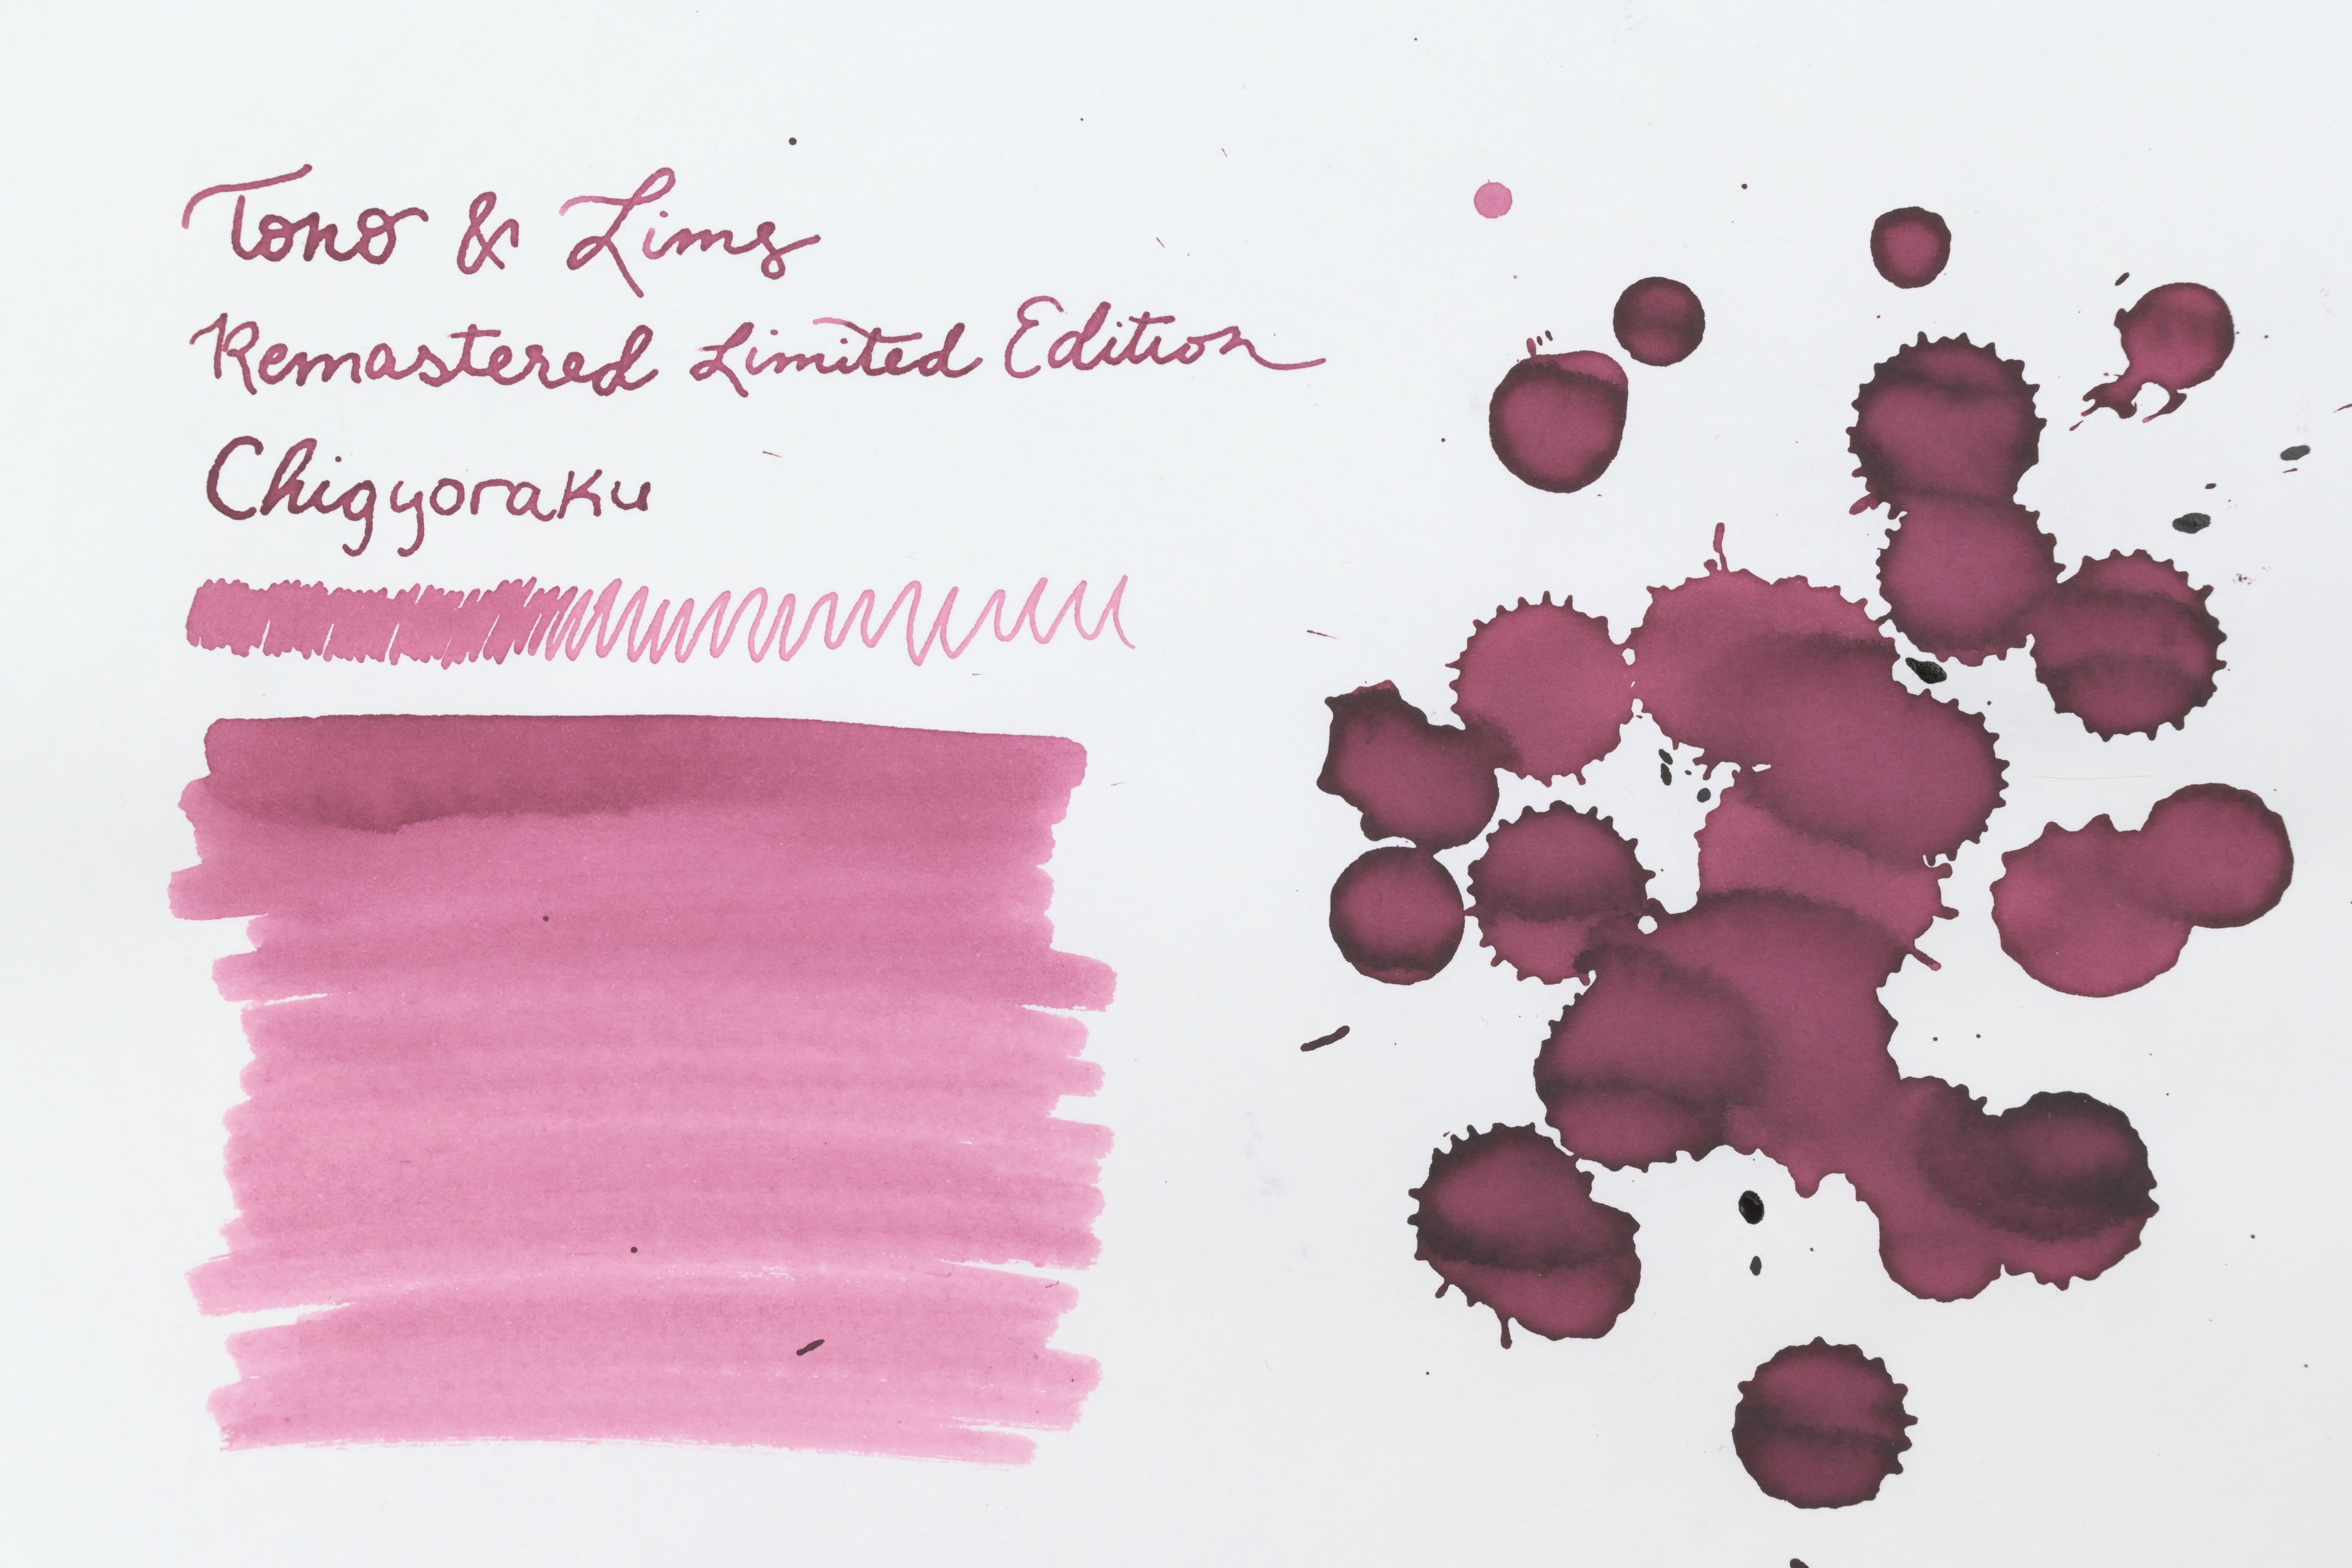 Tono & Lims
Remastered Limited Edition
Chigyoraku